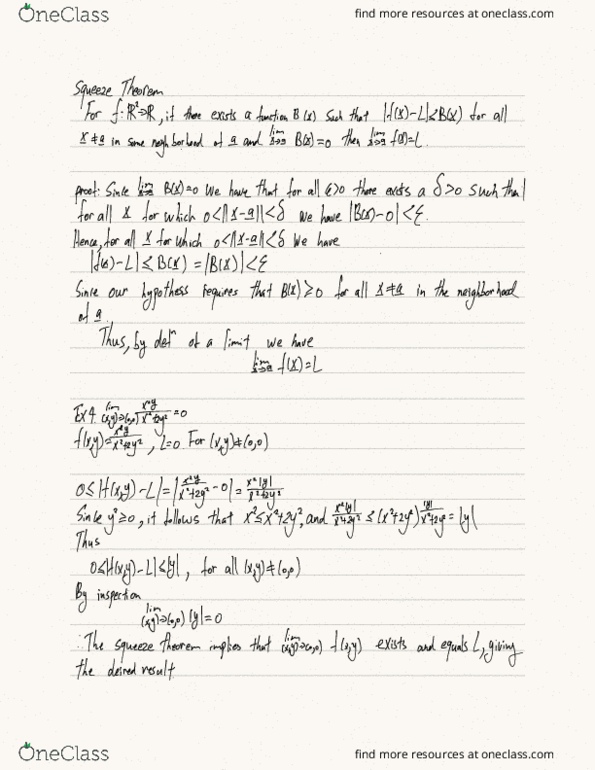 OneClass find more resources at oneclass.com
Squeeze Theorem
For f: ℝ²→ℝ, if there exists a function B(x) such that |f(x)-L|≤B(x) for all
x≠a in some neighborhood of a and lim x→a B(x)=0 then lim x→a f(x)=L.
proof: Since lim x→a B(x)=0 we have that for all ε>0 there exists a δ>0 such that
for all x for which 0<||x-a||<δ we have |B(x)-0|<ε.
Hence, for all x for which 0<||x-a||<δ we have
|f(x)-L|≤B(x)=|B(x)|<ε
Since our hypothesis requires that B(x)≥0 for all x≠a in the neighborhood
of a.
Thus, by defⁿ of a limit we have
lim x→a f(x)=L
Ex 4. lim (x,y)→(0,0) x²y/(x²+2y²)=0
f(x,y)=x²y/(x²+2y²), L=0. For (x,y)≠(0,0)
0≤|f(x,y)-L|=|x²y/(x²+2y²)-0|=x²|y|/(x²+2y²)
Since y²≥0, it follows that x²≤x²+2y², and x²|y|/(x²+2y²)≤(x²+2y²)|y|/(x²+2y²)=|y|
Thus
0≤|f(x,y)-L|≤|y|, for all (x,y)≠(0,0)
By inspection
lim (x,y)→(0,0) |y|=0
∴ The squeeze theorem implies that lim (x,y)→(0,0) f(x,y) exists and equals L, giving
the desired result
OneClass find more resources at oneclass.com